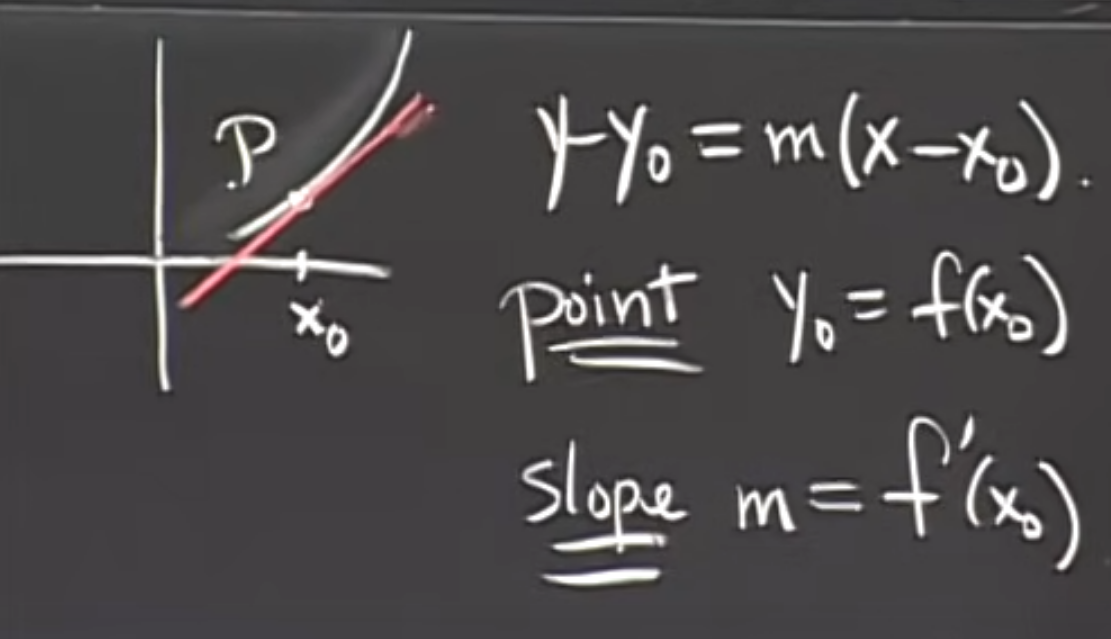 P
x₀
y-y₀ = m(x-x₀).
point y₀ = f(x₀)
slope m = f'(x₀)